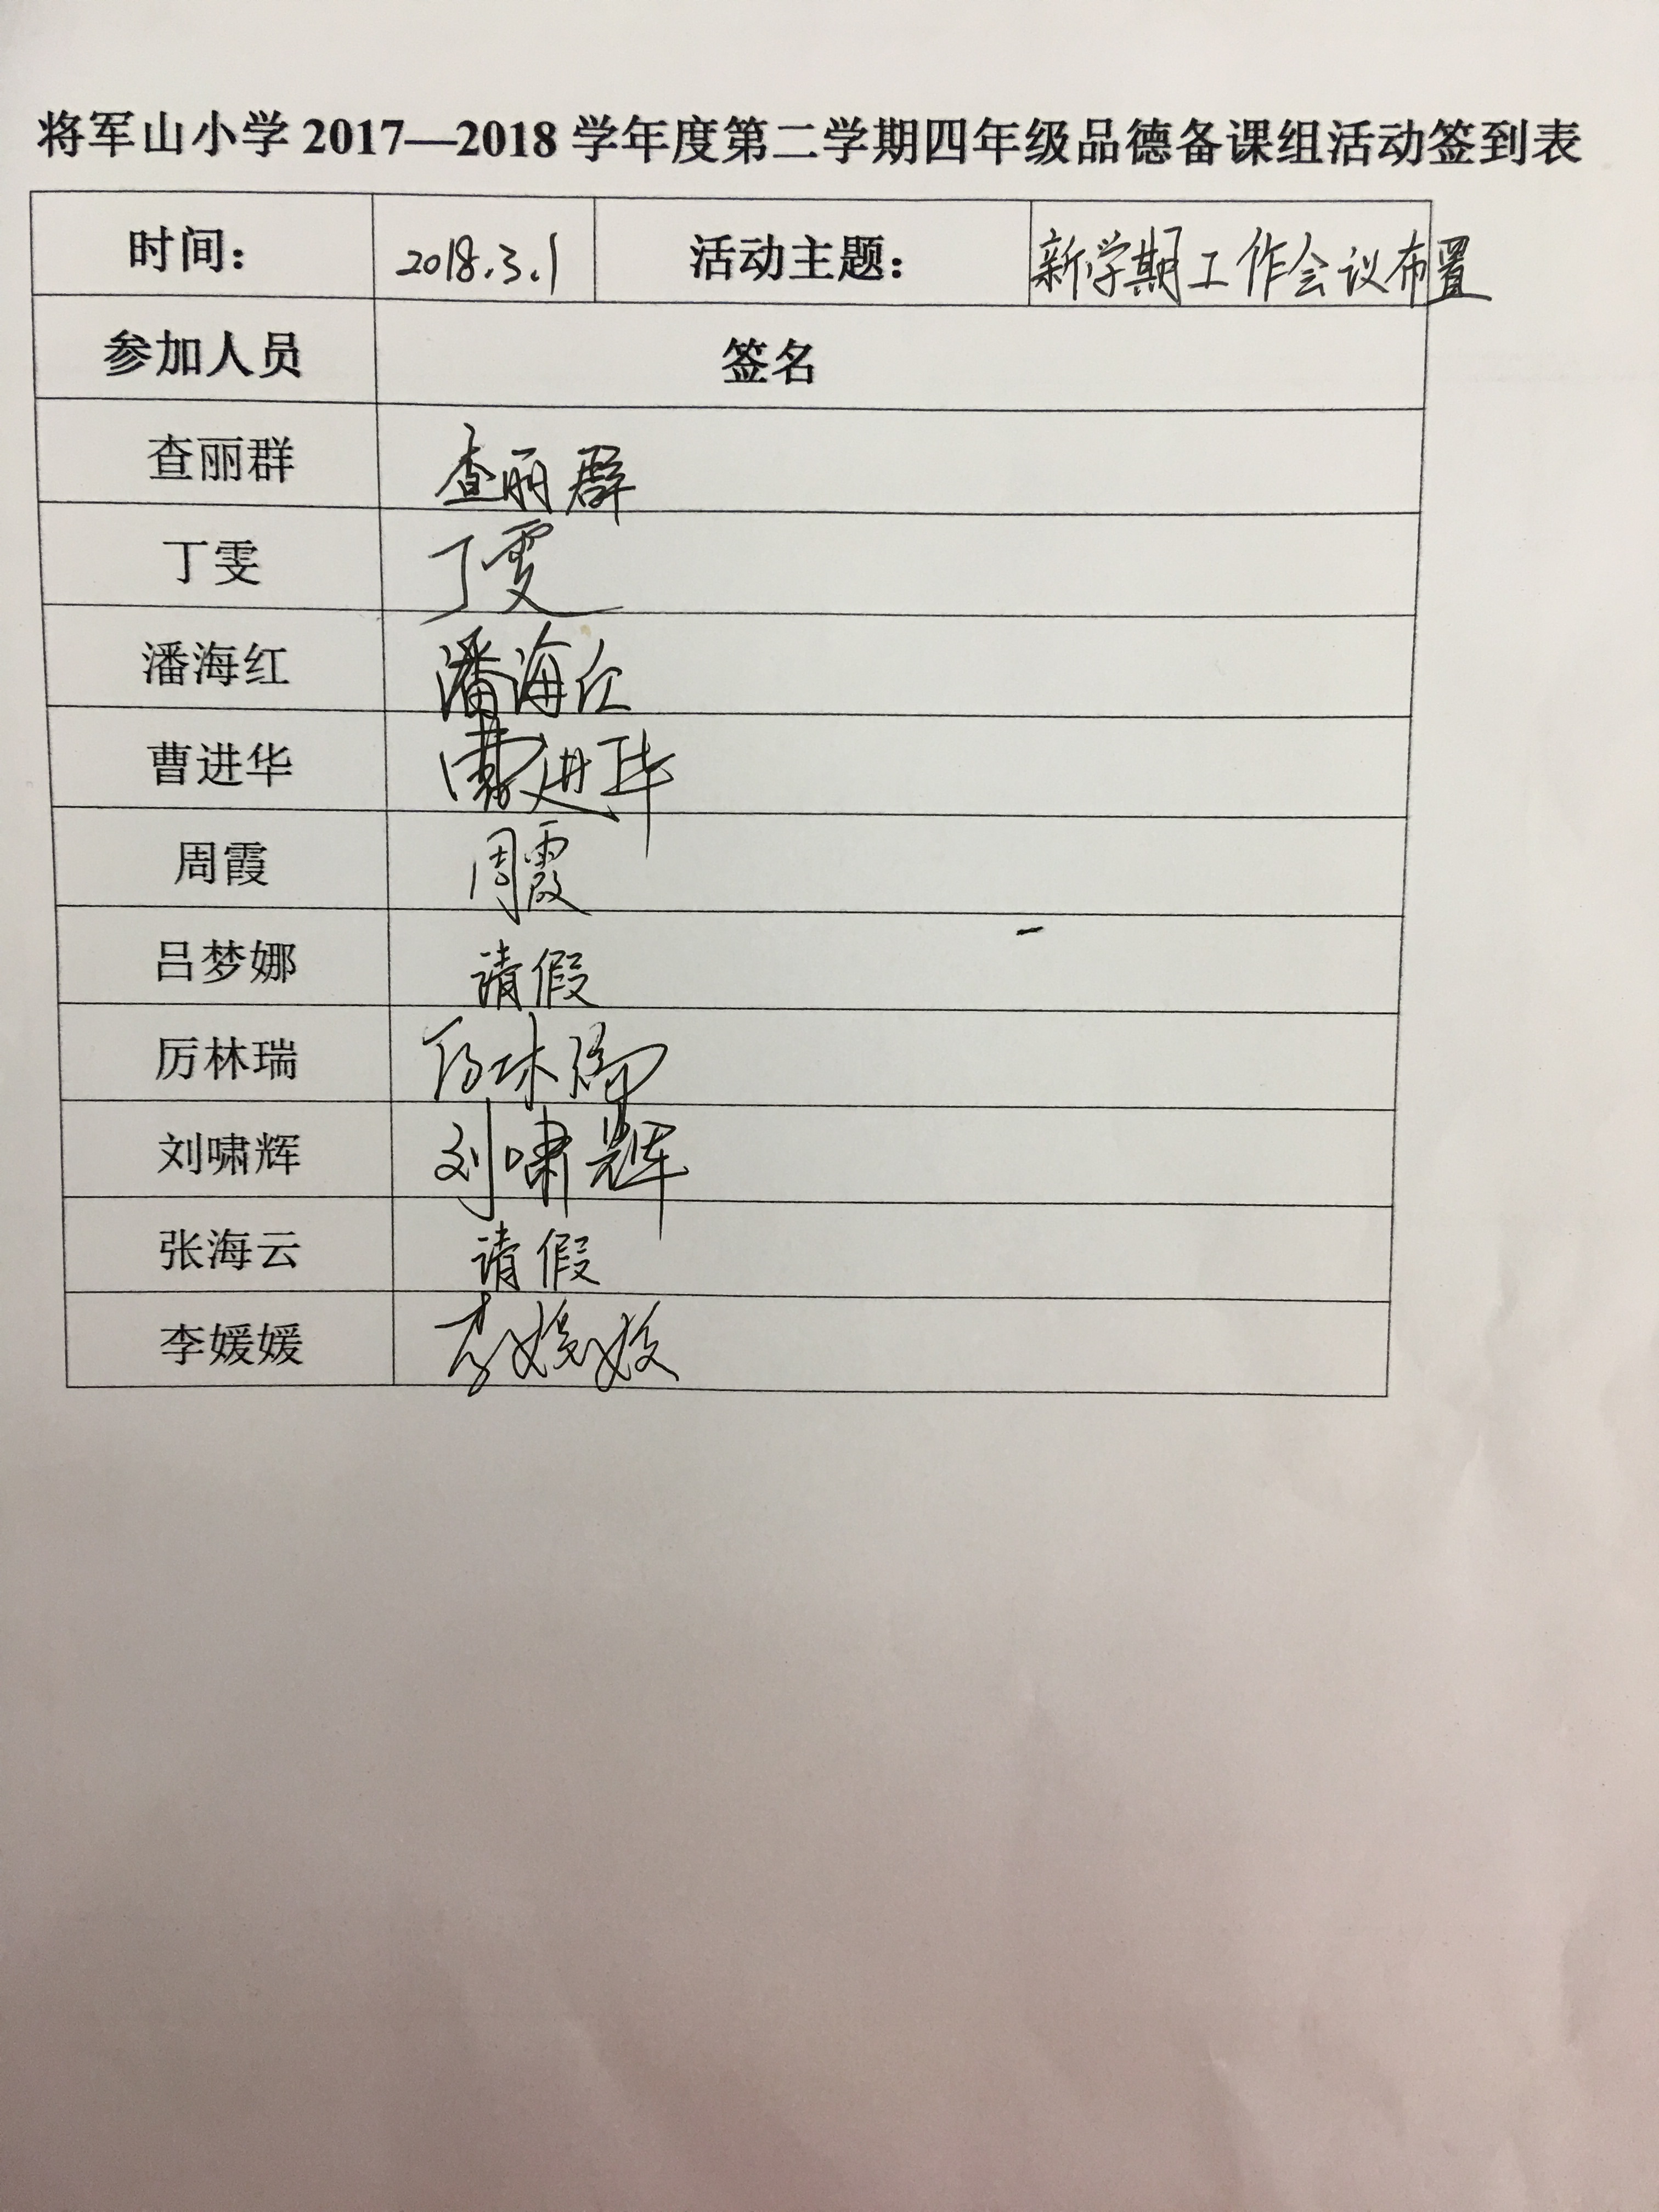 将军山小学2017—2018学年度第二学期四年级品德备课组活动签到表
时间： 2018.3.1 活动主题： 新学期工作会议布置
参加人员 签名
查丽群 查丽群
丁雯 丁雯
潘海红 潘海红
曹进华 曹进华
周霞 周霞
吕梦娜 请假
厉林瑞 厉林瑞
刘啸辉 刘啸辉
张海云 请假
李媛媛 李媛媛